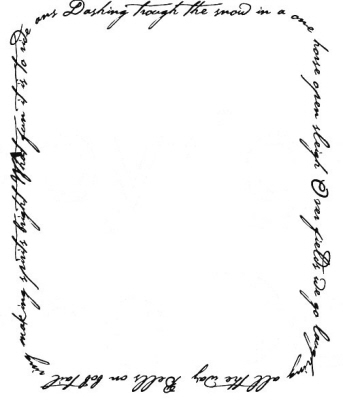 Dashing trough the snow in a one
horse open sleigh Over fields We go laughing
all the Way Bells on bob tail
ring making spirits bright